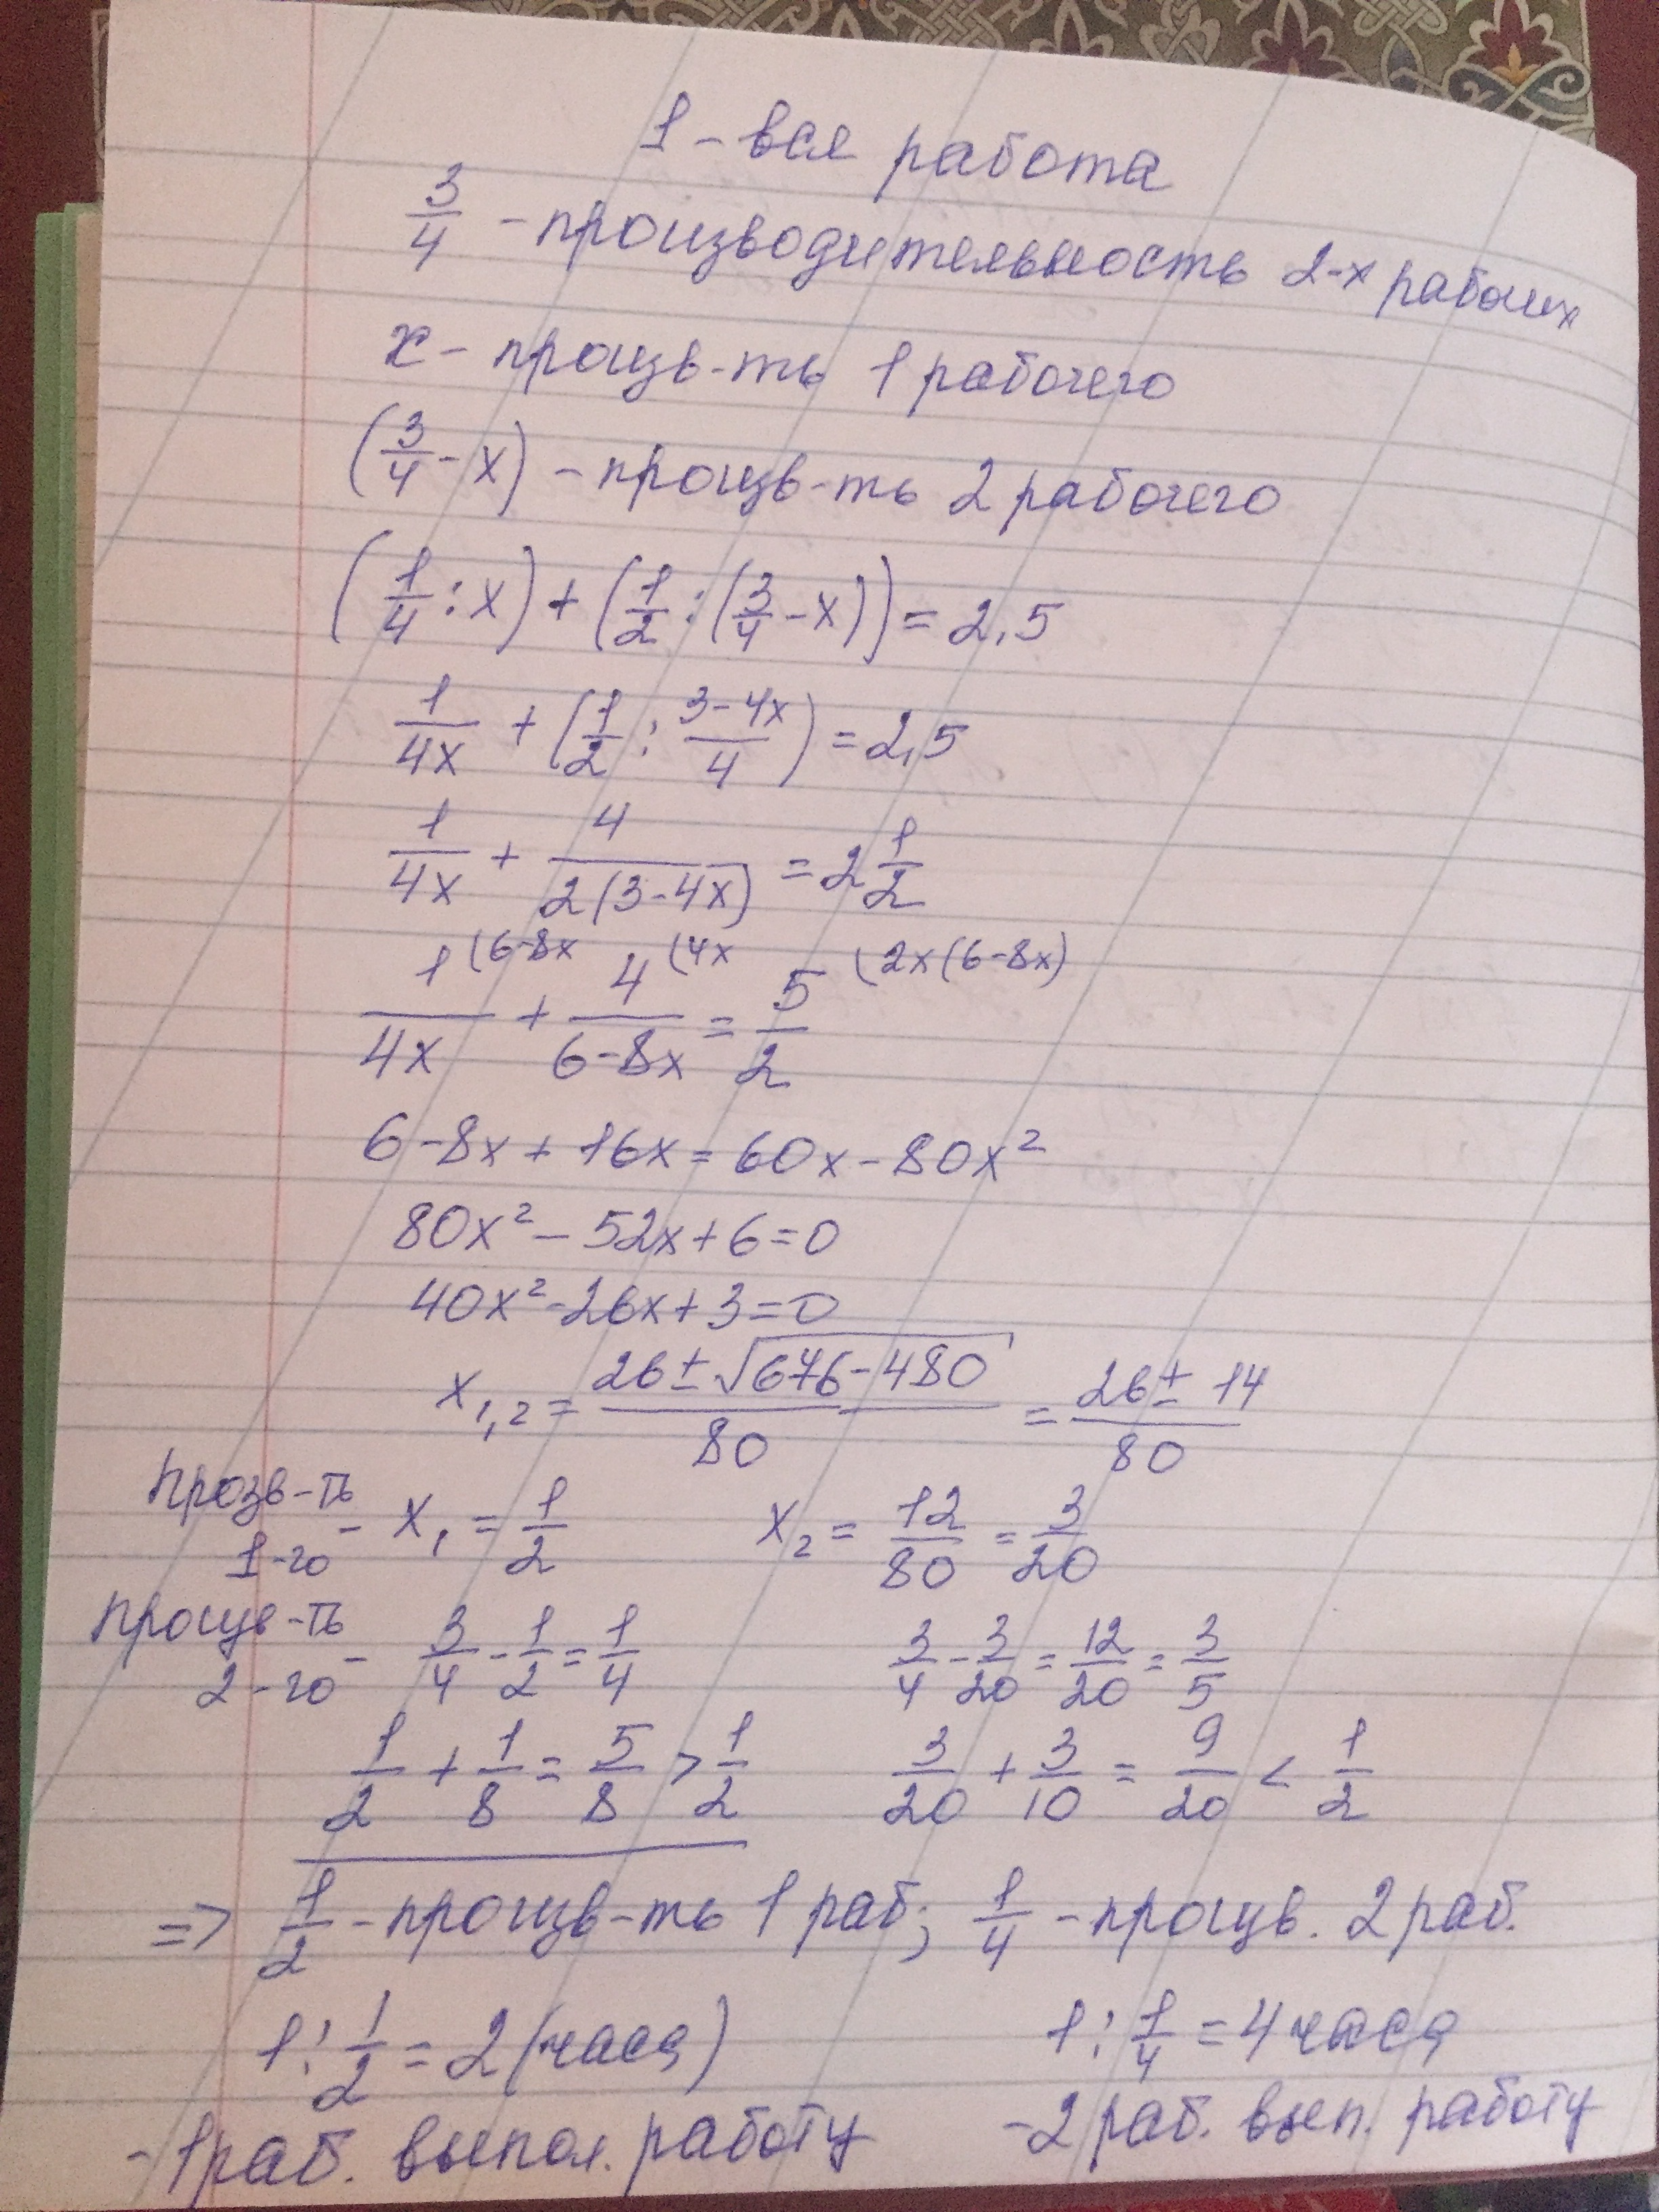 1 - вся работа
3/4 - производительность 2-х рабочих
x - произв-ть 1 рабочего
(3/4 - x) - произв-ть 2 рабочего
(1/4 : x) + (1/2 : (3/4 - x)) = 2,5
1/4x + (1/2 : (3-4x)/4) = 2,5
1/4x + 4/2(3-4x) = 2 1/2
1/4x (6-8x + 4/6-8x (4x = 5/2 (2x(6-8x)
6-8x + 16x = 60x - 80x²
80x² - 52x + 6 = 0
40x² - 26x + 3 = 0
x₁,₂ = (26 ± √676-480)/80 = (26 ± 14)/80
Прозв-ть 1-го - x₁ = 1/2 x₂ = 12/80 = 3/20
Произв-ть 2-го - 3/4 - 1/2 = 1/4 3/4 - 3/20 = 12/20 = 3/5
1/2 + 1/8 = 5/8 > 1/2 3/20 + 3/10 = 9/20 < 1/2
=> 1/2 - произв-ть 1 раб; 1/4 - произв. 2 раб.
1 : 1/2 = 2 (часа) 1 : 1/4 = 4 часа
- 1 раб. выпол. работу - 2 раб. вып. работу